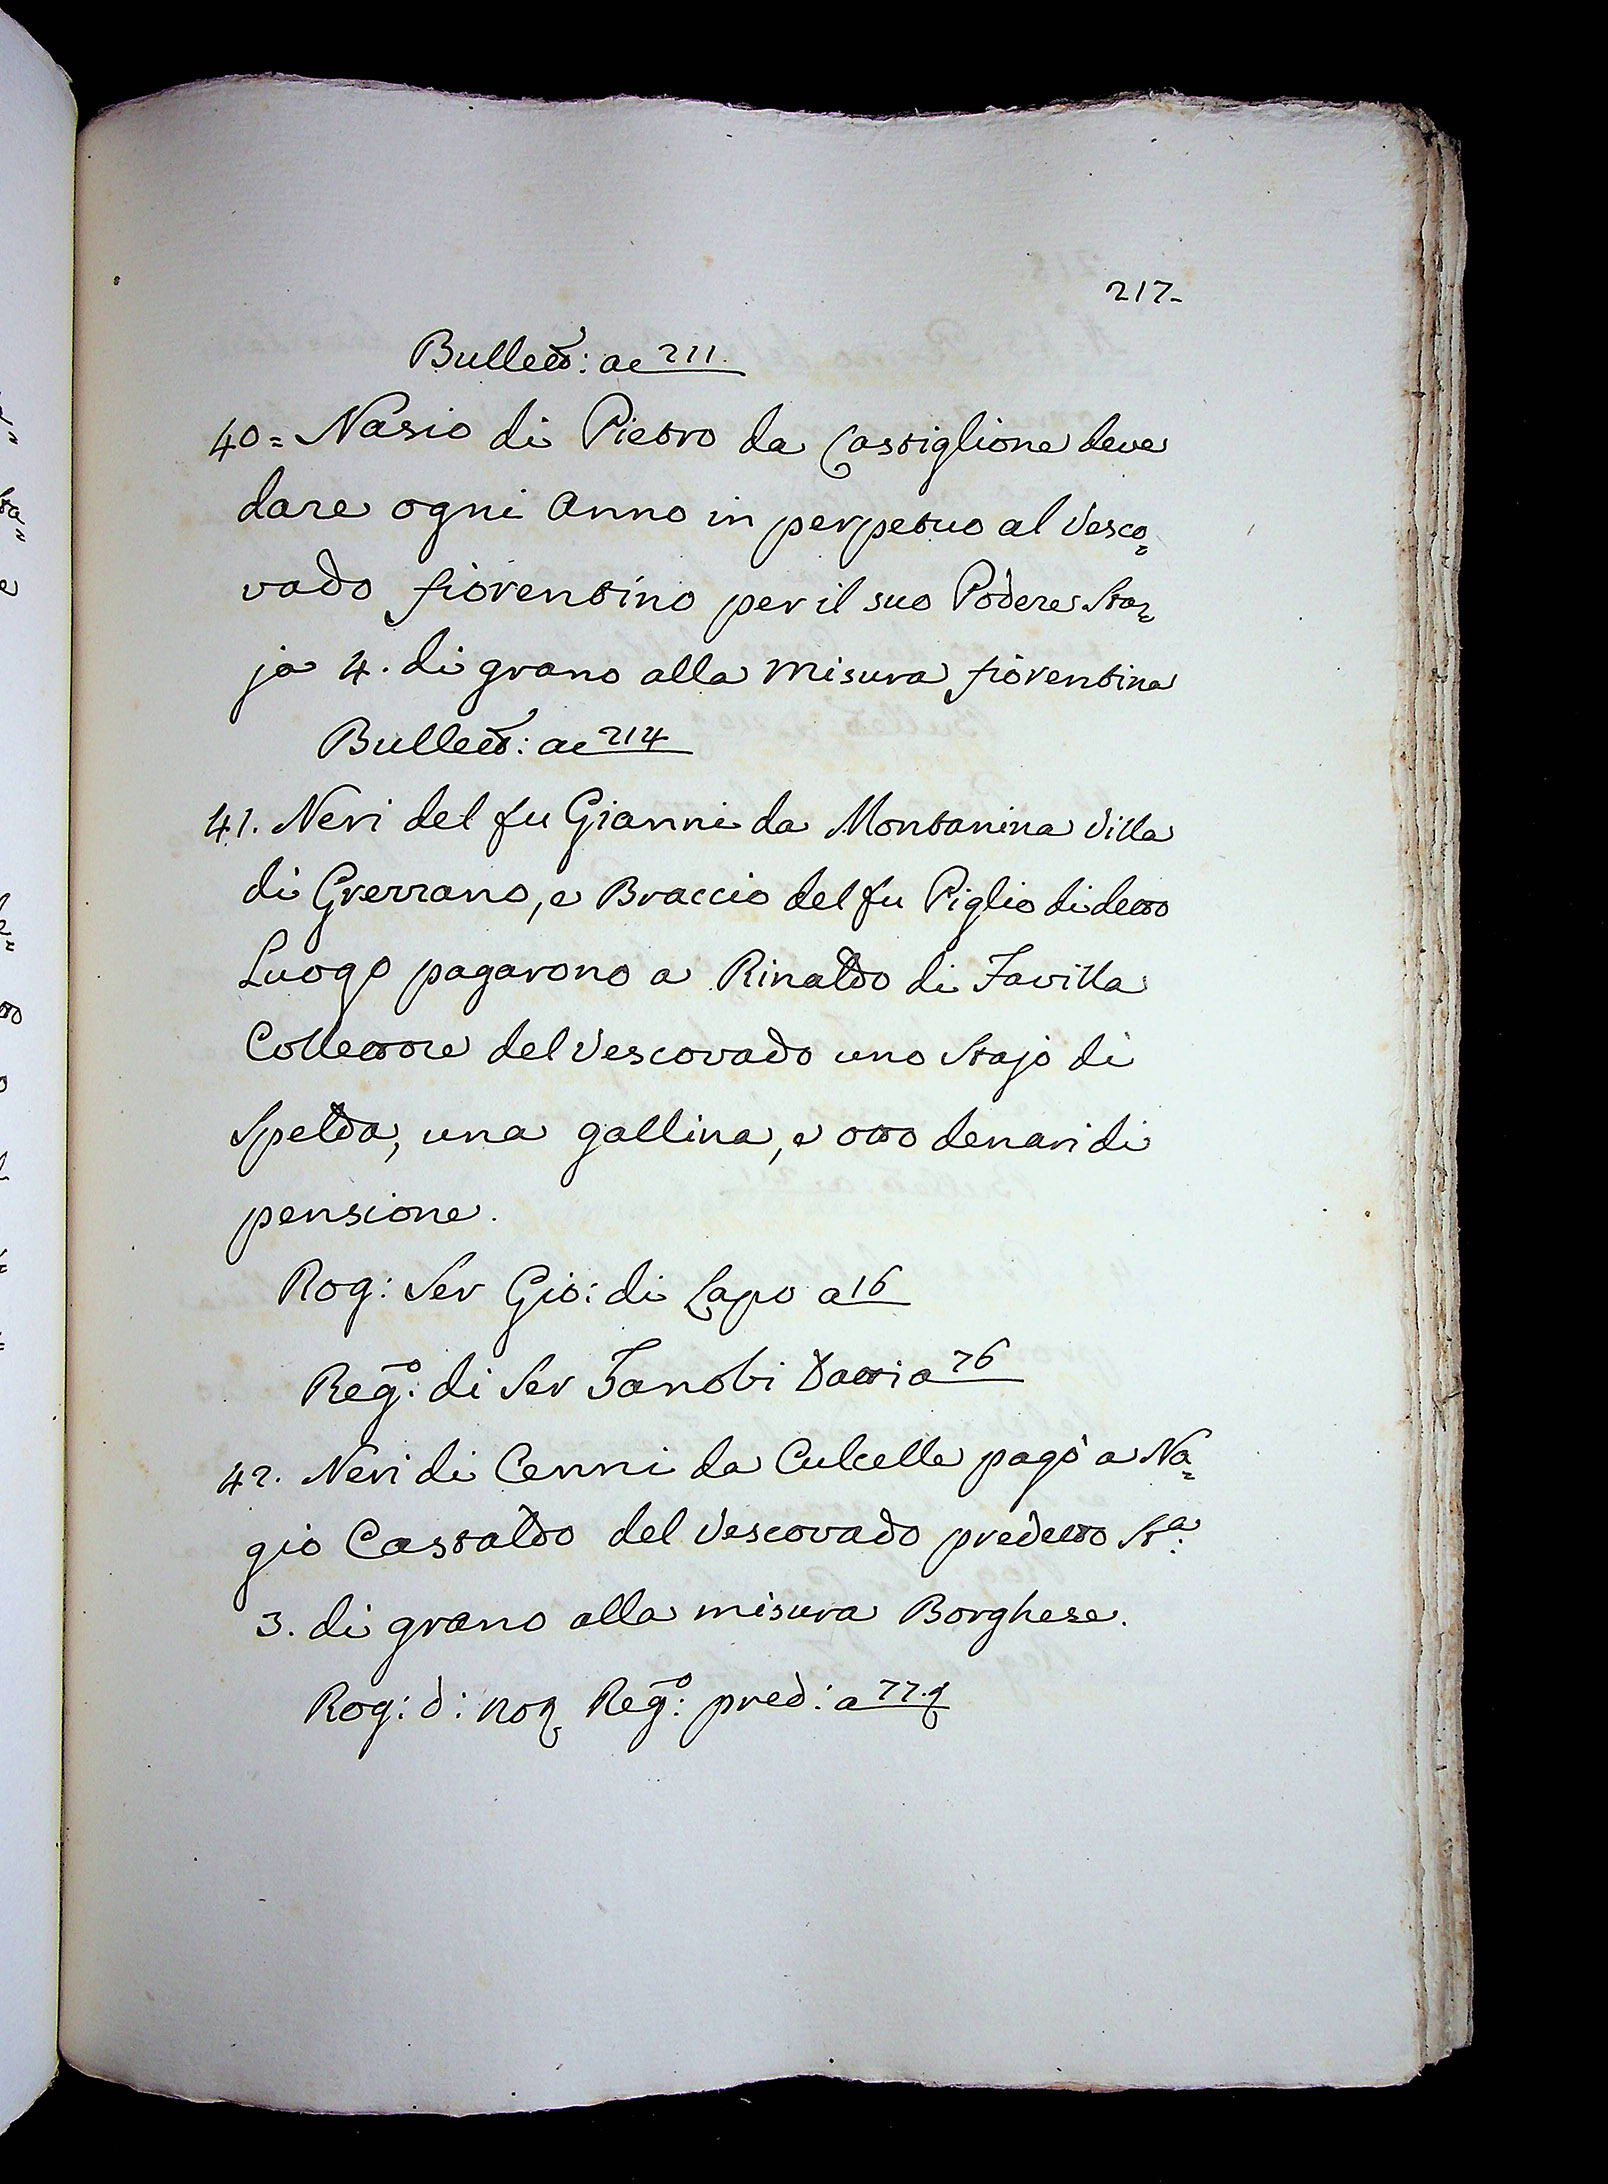 217.
Bullett: ac 211.
40= Nasio di Pietro da Castiglione deve
dare ogni Anno in perpetuo al Vesco=
vado fiorentino per il suo Podere Sta=
ja 4. di grano alla misura fiorentina
Bullett: ac 214
41. Neri del fu Gianni da Montanina Villa
di Grezzano, e Braccio del fu Piglio di detto
Luogo pagarono a Rinaldo di Favilla
Collettore del Vescovado uno Stajo di
Spelda, una gallina, e otto denari di
pensione.
Rog: Ser Gio: di Lapo a 16
Reg.o: di Ser Zanobi Datti a 76
42. Neri di Cenni da Culcelle pagò a Na=
gio Castaldo del Vescovado predetto St.a:
3. di grano alla misura Borghese.
Rog: d: Reg.o: pred: a 77.